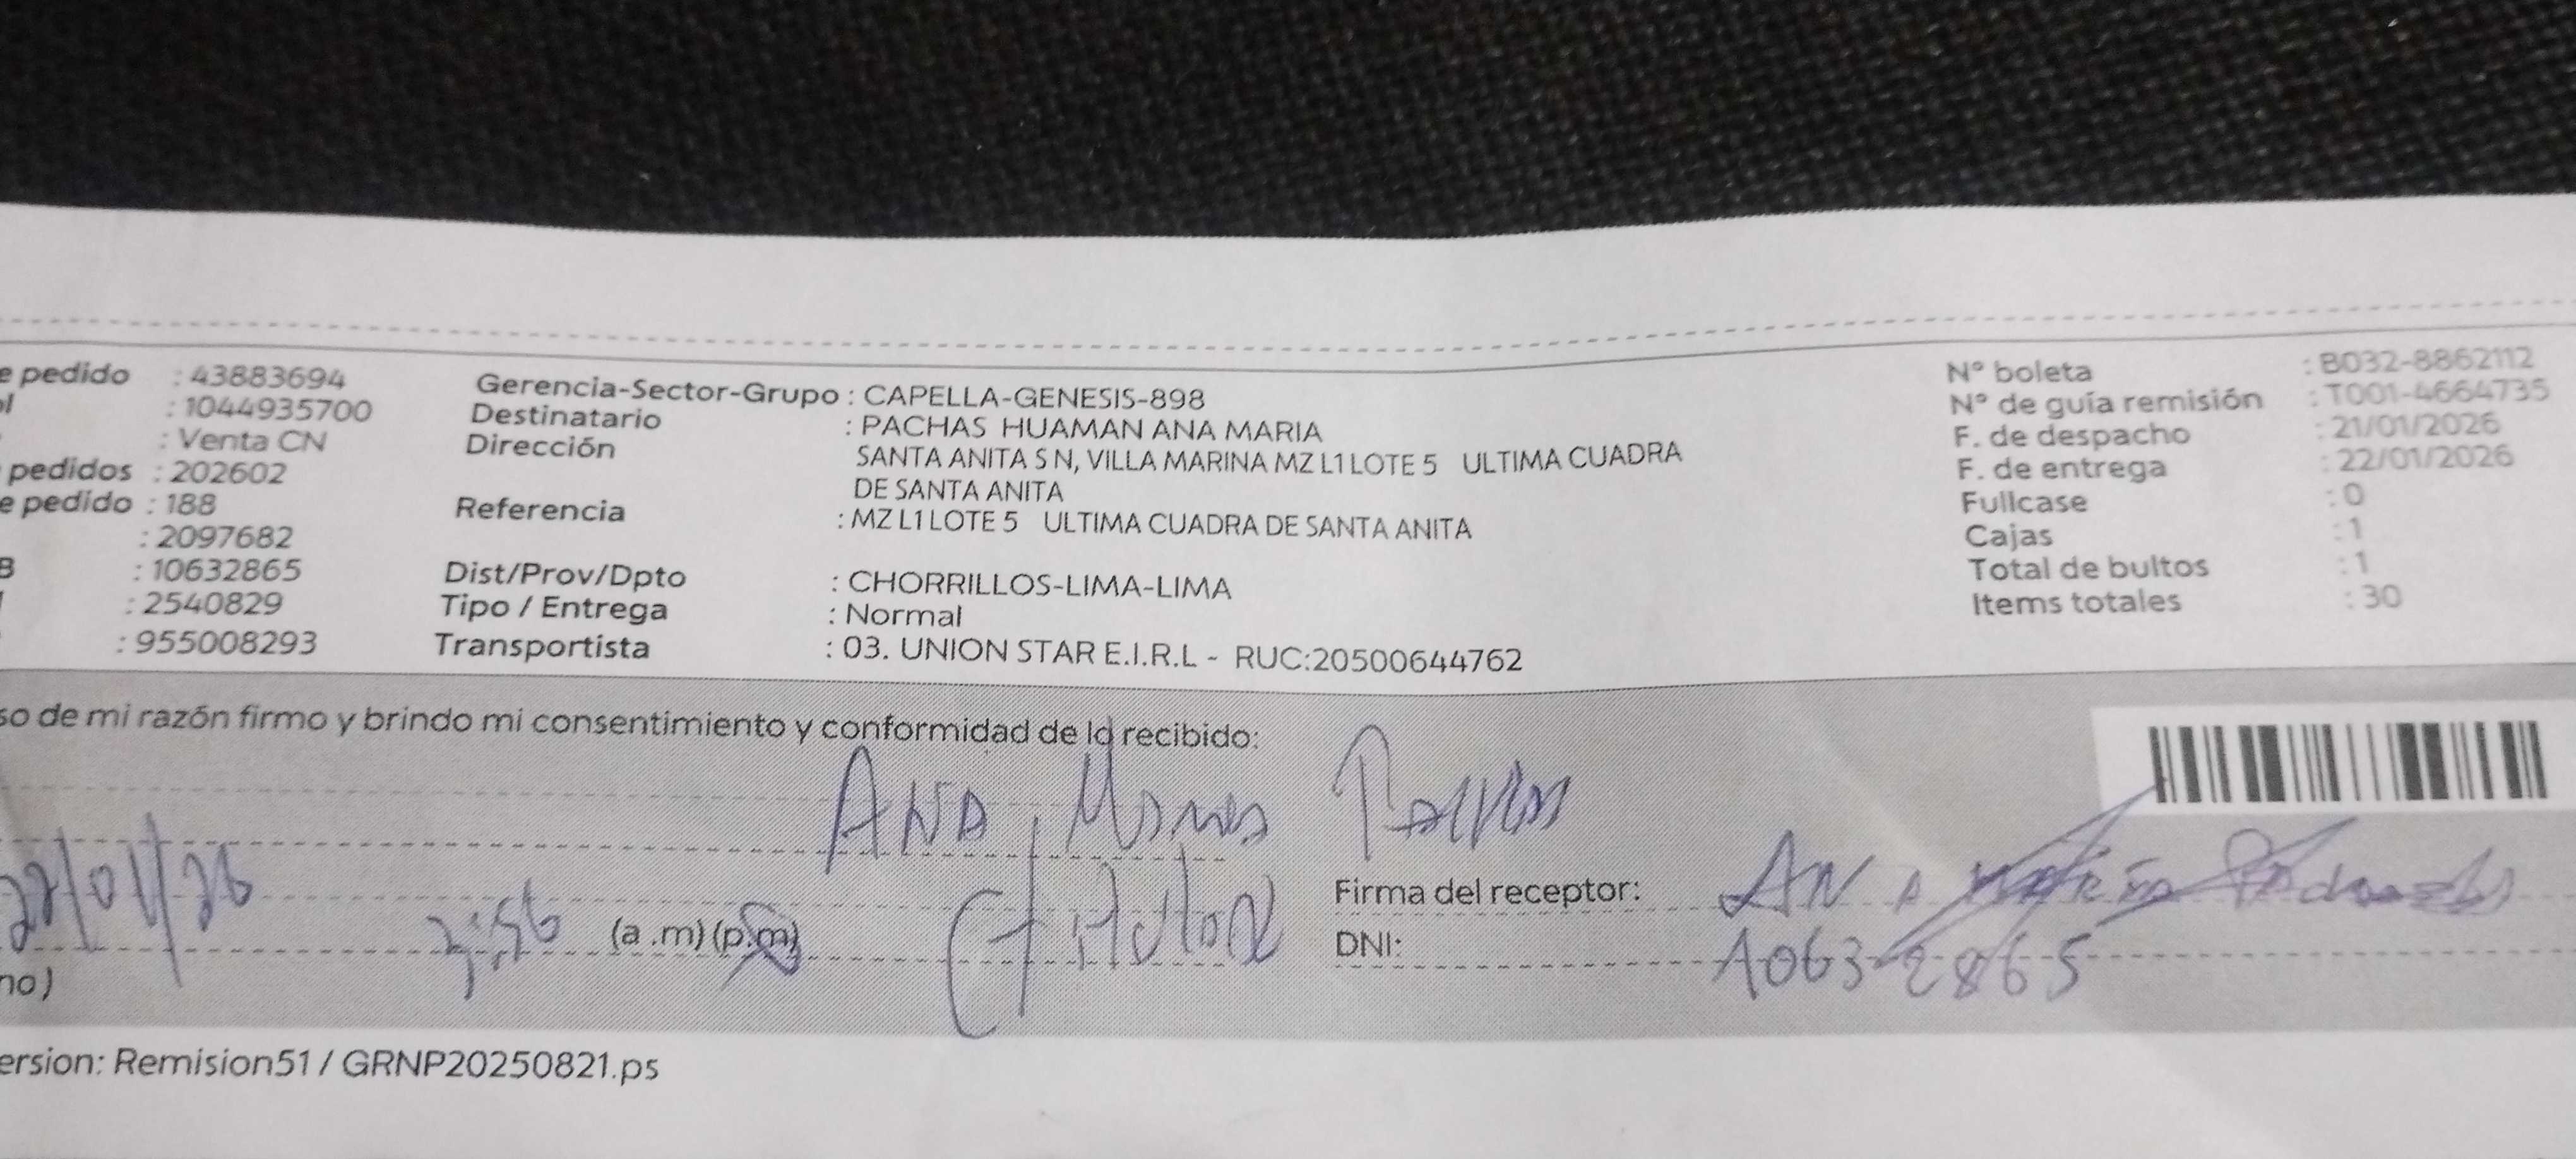 e pedido : 43883694
ol : 1044935700
: Venta CN
pedidos : 202602
e pedido : 188
: 2097682
B : 10632865
: 2540829
: 955008293
Gerencia-Sector-Grupo : CAPELLA-GENESIS-898
Destinatario : PACHAS HUAMAN ANA MARIA
Dirección SANTA ANITA S N, VILLA MARINA MZ L1 LOTE 5 ULTIMA CUADRA
DE SANTA ANITA
Referencia : MZ L1 LOTE 5 ULTIMA CUADRA DE SANTA ANITA
Dist/Prov/Dpto : CHORRILLOS-LIMA-LIMA
Tipo / Entrega : Normal
Transportista : 03. UNION STAR E.I.R.L - RUC:20500644762
N° boleta : B032-8862112
N° de guía remisión : T001-4664735
F. de despacho : 21/01/2026
F. de entrega : 22/01/2026
Fullcase : 0
Cajas : 1
Total de bultos : 1
Items totales : 30
so de mi razón firmo y brindo mi consentimiento y conformidad de lo recibido:
ANA
22/01/26
3:56 (a .m) (p.m)
(titular
Firma del receptor: ANA
DNI: 10632865
no)
ersion: Remision51 / GRNP20250821.ps